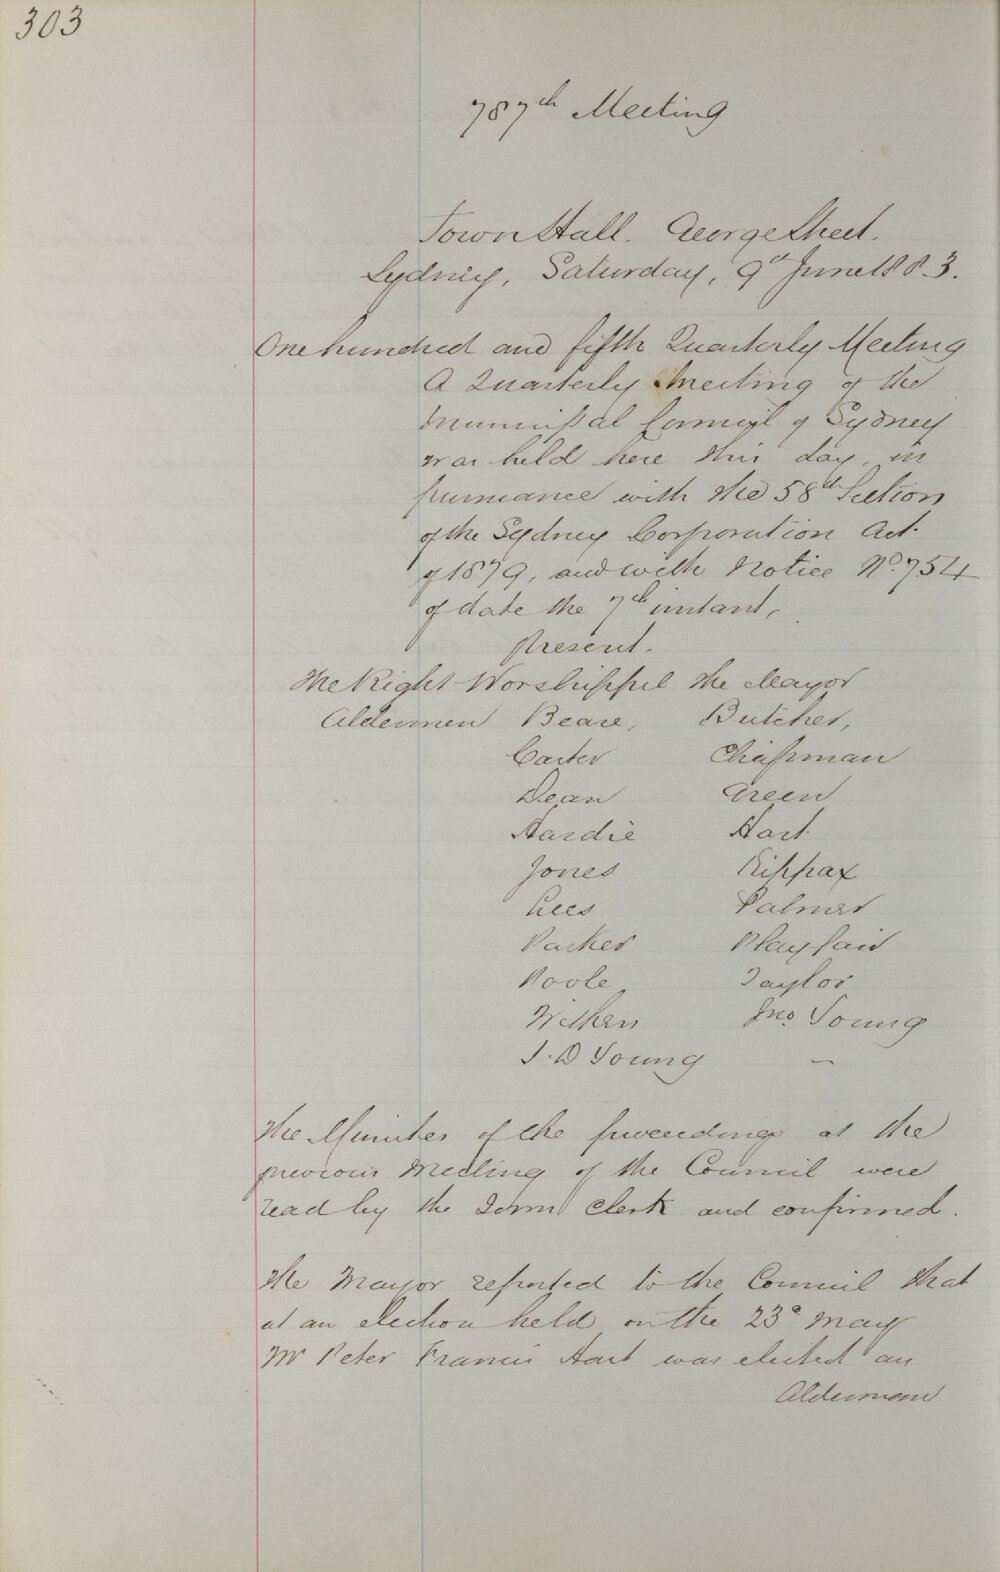 303
787th Meeting
Town Hall. George Street.
Sydney, Saturday, 9th June 1883.
One hundred and fifth Quarterly Meeting
A Quarterly Meeting of the
Municipal Council of Sydney
was held here this day in
pursuance with the 58th Section
of the Sydney Corporation Act
of 1879, and with Notice No. 754
of date the 7th instant,
Present.
The Right Worshipful the Mayor
Aldermen Beare, Butcher,
Carter Chapman
Dean Green
Hardie Hart
Jones Kippax
Lees Palmer
Parker Playfair
Poole Taylor
Withers Jno. Young
J. D Young –
The Minutes of the proceedings at the
previous Meeting of the Council were
read by the Town Clerk and confirmed.
The Mayor reported to the Council that
at an election held on the 23d May
Mr Peter Francis Hart was elected an
Alderman